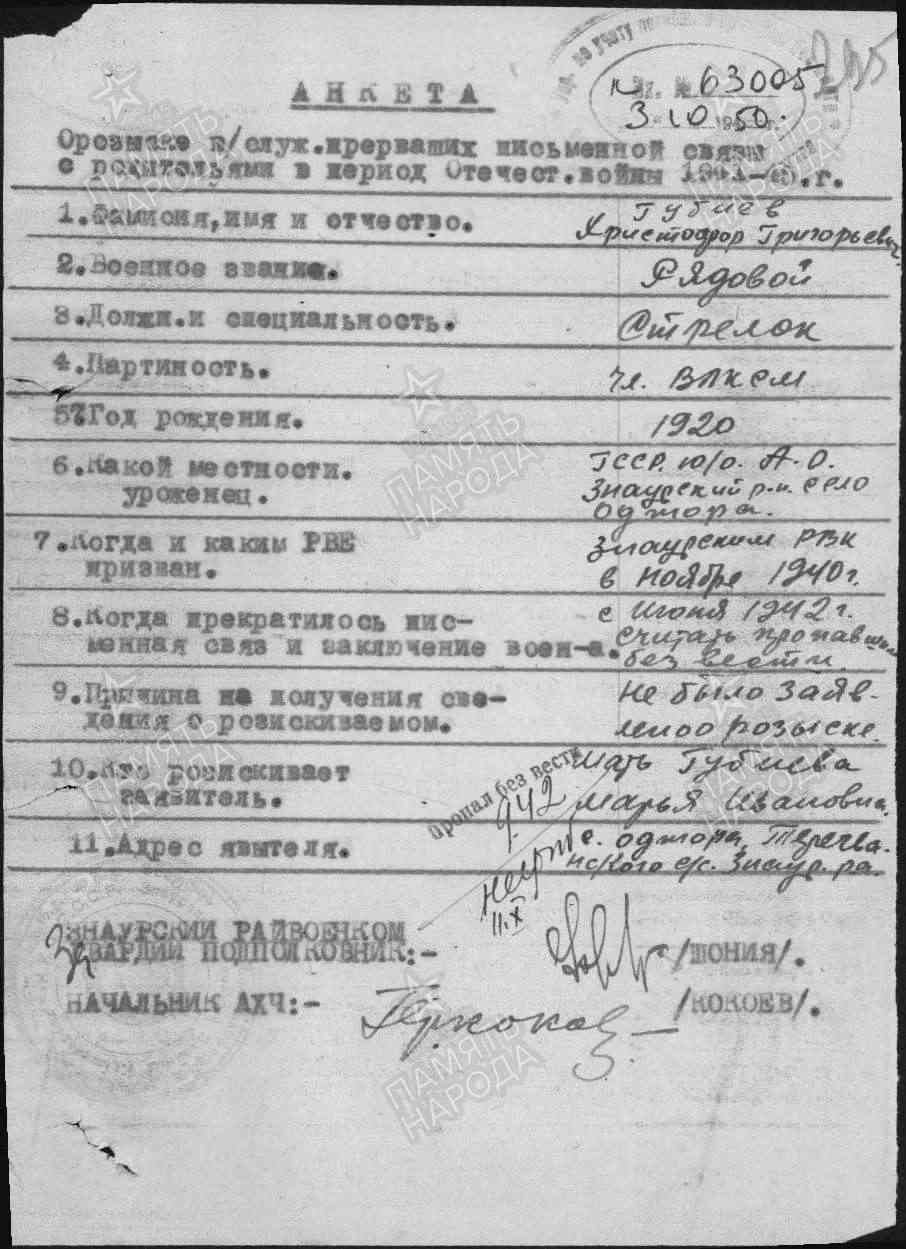 Вх. № 63005
3. 10 1950 г.
АНКЕТА
Орозыске в/служ.прервавших письменной связы
с родительями в период Отечест.войны 1941-45.г.
1.Фамисия,имя и отчество. Губиев
Христофор Григорьевич.
2.Военное звание. Рядовой
3.Должн.и специальность. Стрелок
4.Партиность. Чл. ВЛКСМ
5.Год рождения. 1920
6.Какой местности. ГССР. Ю/О. А.О.
уроженец. Знаурский р-н. село
Оджора.
7.Когда и каким РВЕ Знаурским РВК
призван. в Ноябре 1940 г.
8.Когда прекратилось пис- с Июня 1942 г.
менная связ и заключение воен-а. Считать пропавшим
без вести.
9.Причина не получения све- Не было заяв-
дения о розискиваемом. розыске.
10.Кто розискивает Мать Губиева
заявитель. Марья Ивановна.
11.Адрес явытеля. с. Оджора,
с/с. Знаур. р-на.
Пропал без вести
9.42
11.X
ЗНАУРСКИЙ РАЙВОЕНКОМ
ГВАРДИИ ПОДПОЛКОВНИК:- /ШОНИЯ/.
НАЧАЛЬНИК АХЧ:- /КОКОЕВ/.
ПАМЯТЬ
НАРОДА